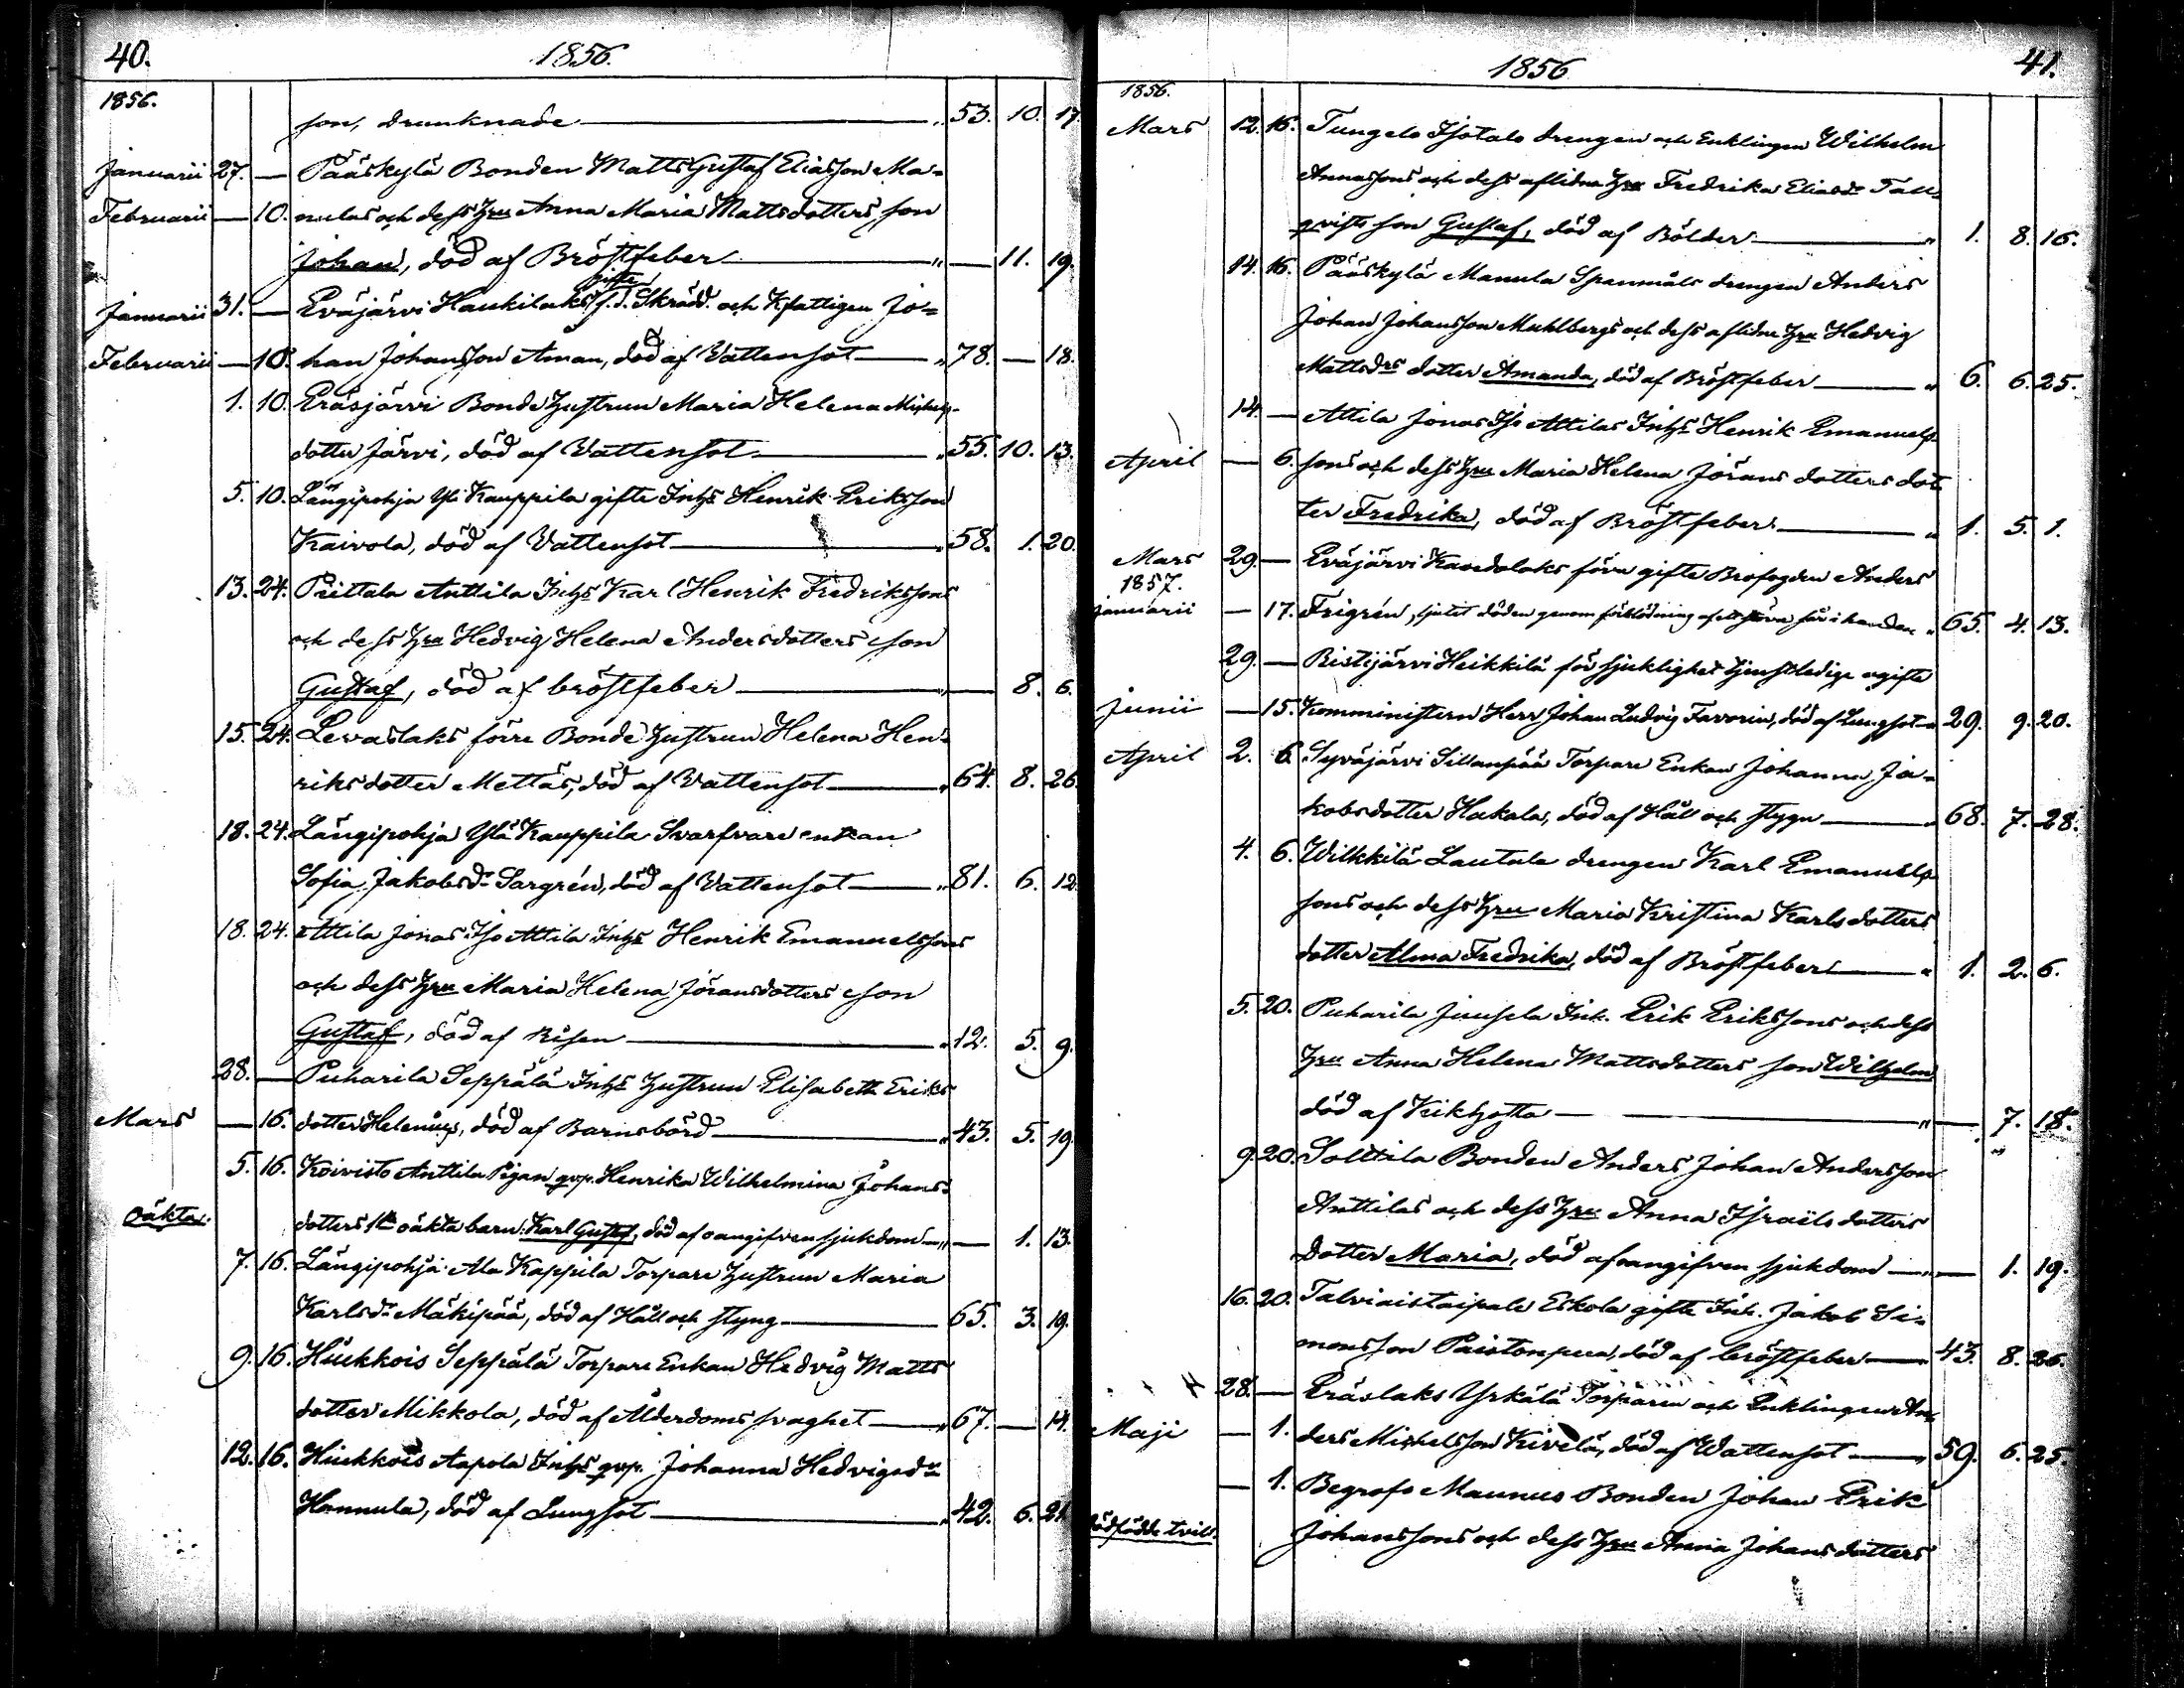 40.
1856.
1856.
son, drunknade — „ 53. 10. 17.
Januarii 27. — Pääskylä Bonden Matts Gustaf Eliasson Ma-
Februarii — 10. nulas och dess Hru Anna Maria Mattsdotters son
Johan, död af Bröstfeber — „ — 11. 19.
gifte
Januarii 31. — Eväjärvi Haukilaks f.d. Skrädd. och Kfattigen Jo-
Februarii — 10. han Johansson Åman, död af Vattensot — „ 78. — 18.
1. 10. Eräsjärvi Bonde Hustrun Maria Helena Michels-
dotter Järvi, död af Vattensot — „ 55. 10. 13.
5. 10. Längipohja Yli Kauppila gifte Inhs Henrik Eriksson
Kaivola, död af Vattensot — „ 58. 1. 20.
13. 24. Peittala Anttila Inhs Karl Henrik Fredrikssons
och dess Hru Hedvig Helena Andersdotters son
Gustaf, död af bröstfeber — „ — 8. 6.
15. 24. Levaslaks förre Bonde Hustrun Helena Hen-
riksdotter Mettäs, död af Vattensot — „ 64. 8. 26.
18. 24. Längipohja Ylä Kauppila Svarfvare enkan
Sofia Jakobsdr Sargrén, död af Vattensot — „ 81. 6. 12.
18. 24. Attila Jonas Iso Attila Inhs Henrik Emanuelssons
och dess Hru Maria Helena Jöransdotters son
Gustaf, död af Risen — „ 12. 5. 9.
28. — Puharila Seppälä Inhs Hustrun Elisabeth Eriks
Mars — 16. dotter Helenius, död af Barnsbörd — „ 43. 5. 19.
5. 16. Koivisto Anttila Pigan qvp. Henrika Wilhelmina Johans-
oäkta. dotters 1sta oäkta barn: Karl Gustaf, död af oangifven sjukdom — „ — 1. 13.
7. 16. Längipohja Ala Kappila Torpare Hustrun Maria
Karlsdr Mäkipää, död af Håll och styng — 65. 3. 19.
9. 16. Hiukkois Seppälä Torpare Enkan Hedvig Matts
dotter Mikkola, död af Ålderdoms svaghet — „ 67. — 14.
12. 16. Hiukkois Aapola Inhs qvp. Johanna Hedvigsdr
Hannula, död af Lungsot — „ 42. 6. 21.
1856
41.
1856.
Mars 12. 16. Tungelo Isotalo drengen och Enklingen Wilhelm
Annassons och dess aflidna Hru Fredrika Eliasdr Tall-
qvists son Gustaf, död af Bölder — „ 1. 8. 16.
14. 16. Pääskylä Manula Spanmåls drengen Anders
Johan Johansson Muhlbergs och dess aflidna Hru Hedvig
Mattsdrs dotter Amanda, död af Bröstfeber — „ 6. 6. 25.
14. — Attila Jonas Iso Attilas Inhs Henrik Emanuels
April — 6. sons och dess Hru Maria Helena Jörans dotters dot
ter Fredrika, död af Bröstfeber — „ 1. 5. 1.
Mars 29. — Eväjärvi Kavedolaks förre gifte Brofogden Anders
1857.
Januarii — 17. Frigrén, ljutit döden genom förblödning af ett större sår i handen „ 65. 4. 13.
29. — Ristijärvi Heikkilä för sjuklighet tjenstledige ogifte
Junii — 15. Komministern Herr Johan Ludvig Favorin, död af Lungsot „ 29. 9. 20.
April 2. 6. Syväjärvi Sillanpää Torpare Enkan Johanna Ja-
kobsdotter Hakala, död af Håll och styng — „ 68. 7. 28.
4. 6. Wilkkilä Lautala drengen Karl Emanuels
sons och dess Hru Maria Kristina Karlsdotters
dotter Alma Fredrika, död af Bröstfeber — „ 1. 2. 6.
5. 20. Puharila Juusela Inh. Erik Erikssons och dess
Hru Anna Helena Mattsdotters son Wilhelm
död af Kikhosta — „ — 7. 18.
9. 20. Solttila Bonden Anders Johan Andersson
Anttilas och dess Hru Anna Israëls dotters
Dotter Maria, död af oangifven sjukdom — „ — 1. 19.
16. 20. Talviaistaipale Eskola gifte Inh. Jakob Si-
monsson Paistonpera, död af bröstfeber — „ 43. 8. 26.
28. — Eräslaks Yrkälä Torparen och Enklingen An-
Maji — 1. ders Michelsson Kivelä, död af Wattensot — „ 59. 6. 25.
— 1. Begrofs Maunus Bonden Johan Erik
dödfödde tvill. Johanssons och dess Hru Anna Johansdotters